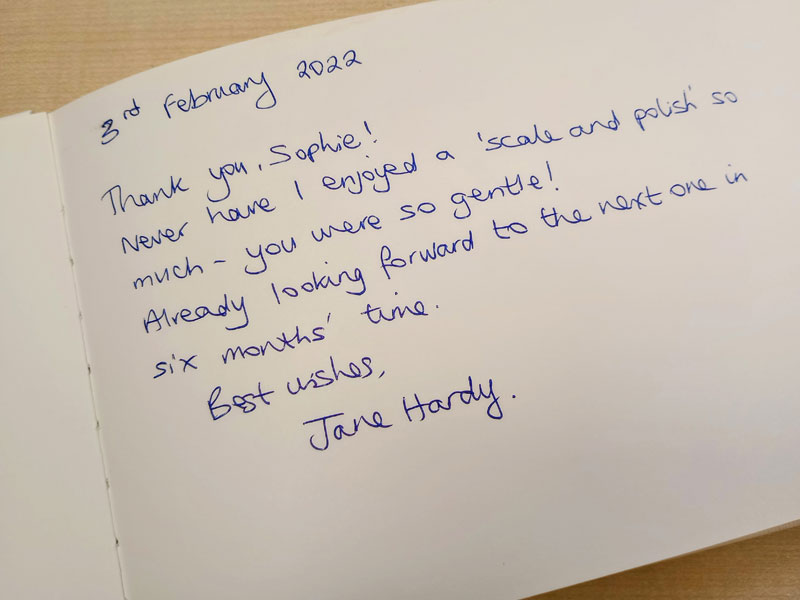 3rd February 2022
Thank you, Sophie!
Never have I enjoyed a 'scale and polish' so
much - you were so gentle!
Already looking forward to the next one in
six months' time.
Best wishes,
Jane Hardy.